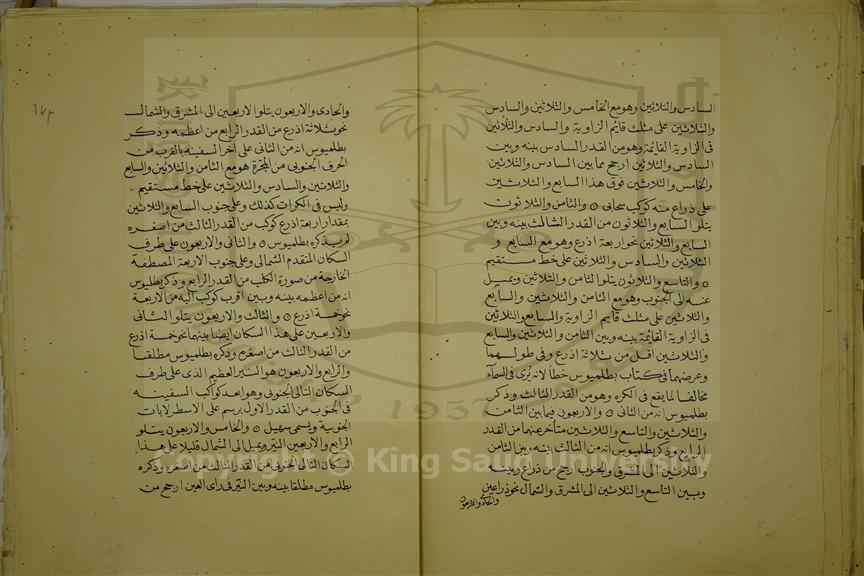 السادس والثلاثين وهو مع الخامس والثلاثين والسادس
والثلاثين على مثلث قائم الزاوية والسادس والثلاثين
فى الزاوية القائمة وهو من القدر السادس بينه وبين
السادس والثلاثين ارجح مما بين السادس والثلاثين
والخامس والثلاثين فوق هذا السابع والثلاثين
على ذراع منه كوكب سحابى ۞ والثامن والثلاثون
يتلو السابع والثلاثون من القدر الثالث بينه وبين
السابع والثلاثين نحو اربعة اذرع وهو مع السابع و
الثلاثين والسادس والثلاثين على خط مستقيم
۞ والتاسع والثلاثون يتلوا الثامن والثلاثين ويميل
عنه الى الجنوب وهو مع الثامن والثلاثين والسابع
والثلاثين على مثلث قايم الزاوية والسابع والثلاثين
فى الزاوية القائمة بينه وبين الثامن والثلاثين والسابع
والثلاثين اقل من ثلاثة اذرع وفى طولهما
وعرضهما فى كتاب بطلميوس خطا لانه يُرى فى السماء
مخالفا لما يقع فى الكره وهو من القدر الثالث وذكر
بطلميوس انه من الثانى ۞ والاربعون فيما بين الثامن
والثلاثين والتاسع والثلاثين متأخر عنهما من القدر
الرابع وذكر بطلميوس انه من الثالث بينه وبين الثامن
والثلاثين الى المشرق والجنوب ارجح من ذراع وبينه
وبين التاسع والثلاثين الى المشرق والشمال نحو ذراعين
والحادى والاربعون
١٧٣
والحادى والاربعون يتلوا الاربعين الى المشرق والشمال
نحو ثلاثة اذرع من القدر الرابع من اعظمه وذكر
بطلميوس انه من الثانى على اخر السفينه بالقرب من
الحرف الجنوبى من المجرة وهو مع الثامن والثلاثين والسابع
والثلاثين والسادس والثلاثين على خط مستقيم
وليس فى الكرات كذلك وعلى جنوب السابع والثلاثين
بمقدار اربعة اذرع كوكب من القدر الثالث من اصغره
لم يذكره بطلميوس ۞ والثانى والاربعون على طرف
السكان المتقدم الشمالى وعلى جنوب الاربعة المصطفة
الخارجة من صورة الكلب من القدر الرابع وذكر بطلميوس
انه من اعظمه بينه وبين اقرب كوكب اليه من الاربعة
نحو خمسة اذرع ۞ والثالث والاربعون يتلو الثانى
والاربعين على هذا السكان ايضا بينهما نحو خمسة اذرع
من القدر الثالث من اصغره وذكره بطلميوس مطلقا
والرابع والاربعون هو النير العظيم الذى على طرف
السكان التالى الجنوبى وهو ابعد كواكب السفينه
فى الجنوب من القدر الاول يرسم على الاسطرلابات
الجنوبية ويسمى سهيل ۞ والخامس والاربعون يتلو
الرابع والاربعين النير ويميل الى الشمال قليلا على هذا
السكان التالى الجنوبى من القدر الثالث من اصغره وذكره
بطلميوس مطلقا بينه وبين النير فى راى العين ارجح من
1957
Copyright © King Saud University